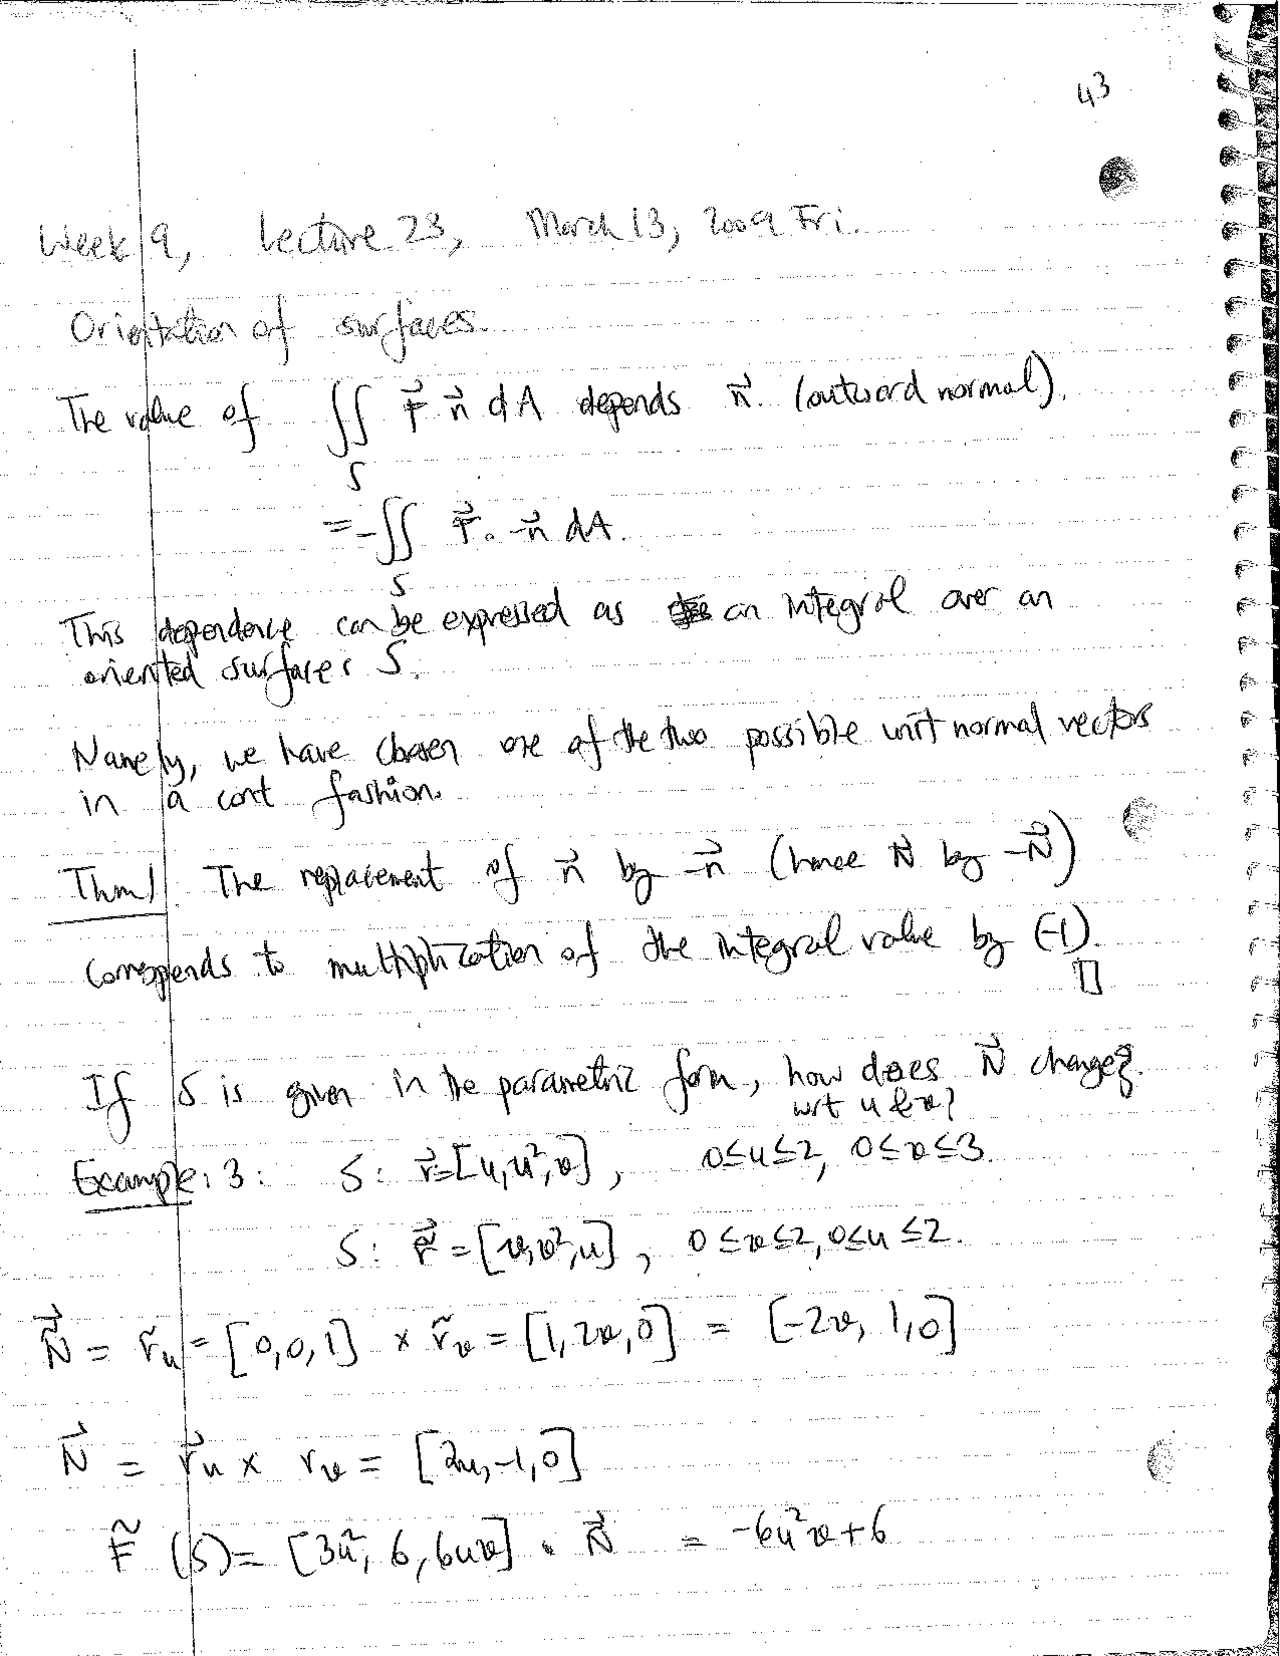 43
Week 9, Lecture 23, March 13, 2009 Fri.
Orientation of surfaces.
The value of ∬_S F⃗ n⃗ dA depends n⃗. (outward normal).
= -∬_S F⃗ . -n⃗ dA.
This dependence can be expressed as an integral over an
oriented surfaces S.
Namely, we have chosen one of the two possible unit normal vectors
in a cont fashion.
Thm 1. The replacement of n⃗ by -n⃗ (hence N⃗ by -N⃗)
corresponds to multiplication of the integral value by (-1).
If S is given in the parametric form, how does N⃗ change?
wrt u & v?
Example: 3: S: r⃗=[u, u², v], 0≤u≤2, 0≤v≤3.
S: r̃ = [v, v², u], 0≤v≤2, 0≤u≤2.
Ñ = r̃_u = [0,0,1] × r̃_v = [1, 2v, 0] = [-2v, 1, 0]
N⃗ = r⃗_u × r_v = [2u, -1, 0]
F̃ (S) = [3u², 6, 6uv] . N⃗ = -6u²v+6